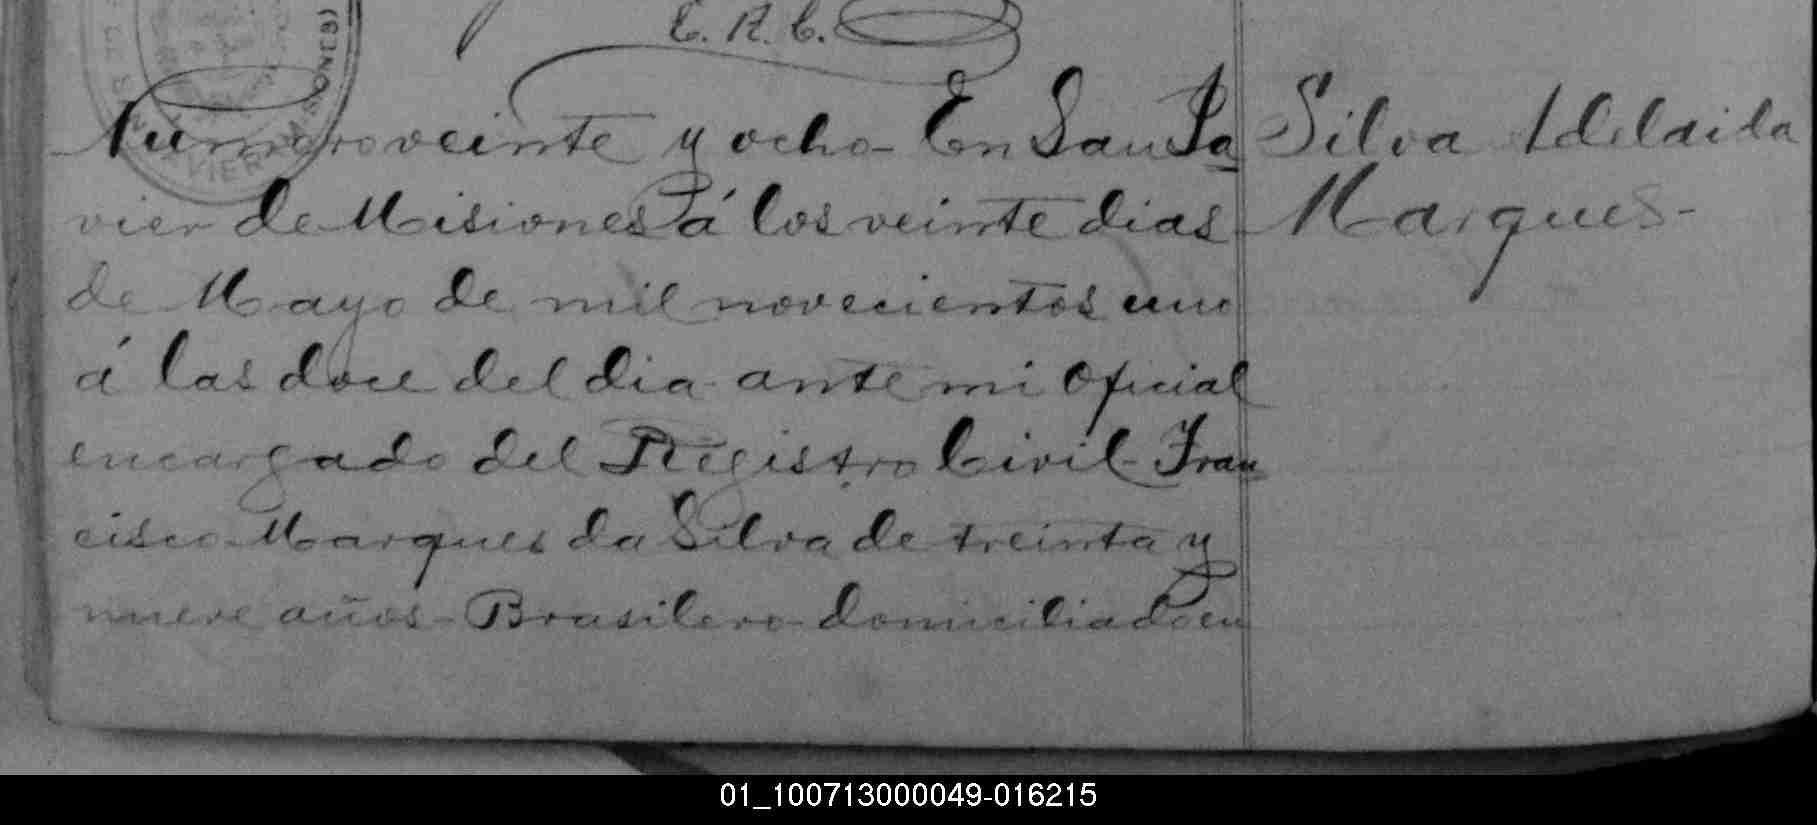 E. R. C.
Numero veinte y ocho- En San Ja
vier de Misiones á los veinte dias
de Mayo de mil novecientos uno
á las doce del dia ante mi Oficial
encargado del Registro Civil- Fran
cisco Marques da Silva de treinta y
nueve años- Brasilero domiciliado en
Silva Adelaida
Marques-
VIER (MISIONES)
01_100713000049-016215